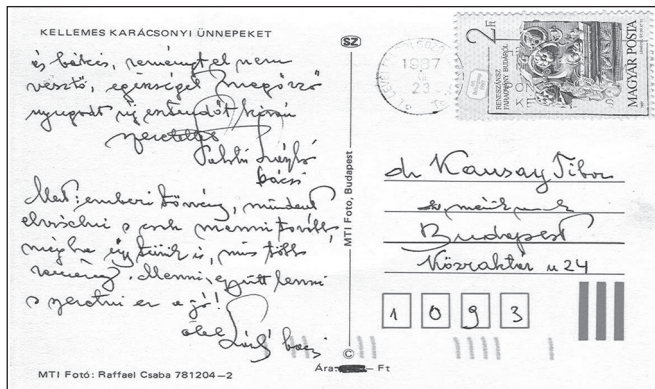 KELLEMES KARÁCSONYI ÜNNEPEKET
és békés, reményt el nem
vesztő, egészséget megőrző
nyugodt új esztendőt kíván
szeretettel
László
bácsi
Mert: emberi törvény, mindent
elviselni s csak menni tovább,
még ha úgy tűnik is, nincs több
remény. Menni, együtt lenni
s szeretni ez a jó!
ölel László bácsi
MTI Fotó: Raffaei Csaba 781204–2
SZ
MTI Foto, Budapest
©
Ára: Ft
1987
23
2 Ft
RENESZÁNSZ
MAGYAR POSTA
dr Kausay Tibor
mérnök
Budapest
Közraktár u 24
1 0 9 3